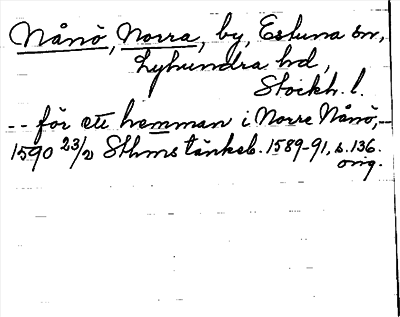 Nånö, Norra, by, Estuna sn,
Lyhundra hd,
Stockh. l.
-- för ett hemman i Norre Nånö,--
1590 23/2 Sthms tänkeb. 1589-91, s. 136.
orig.